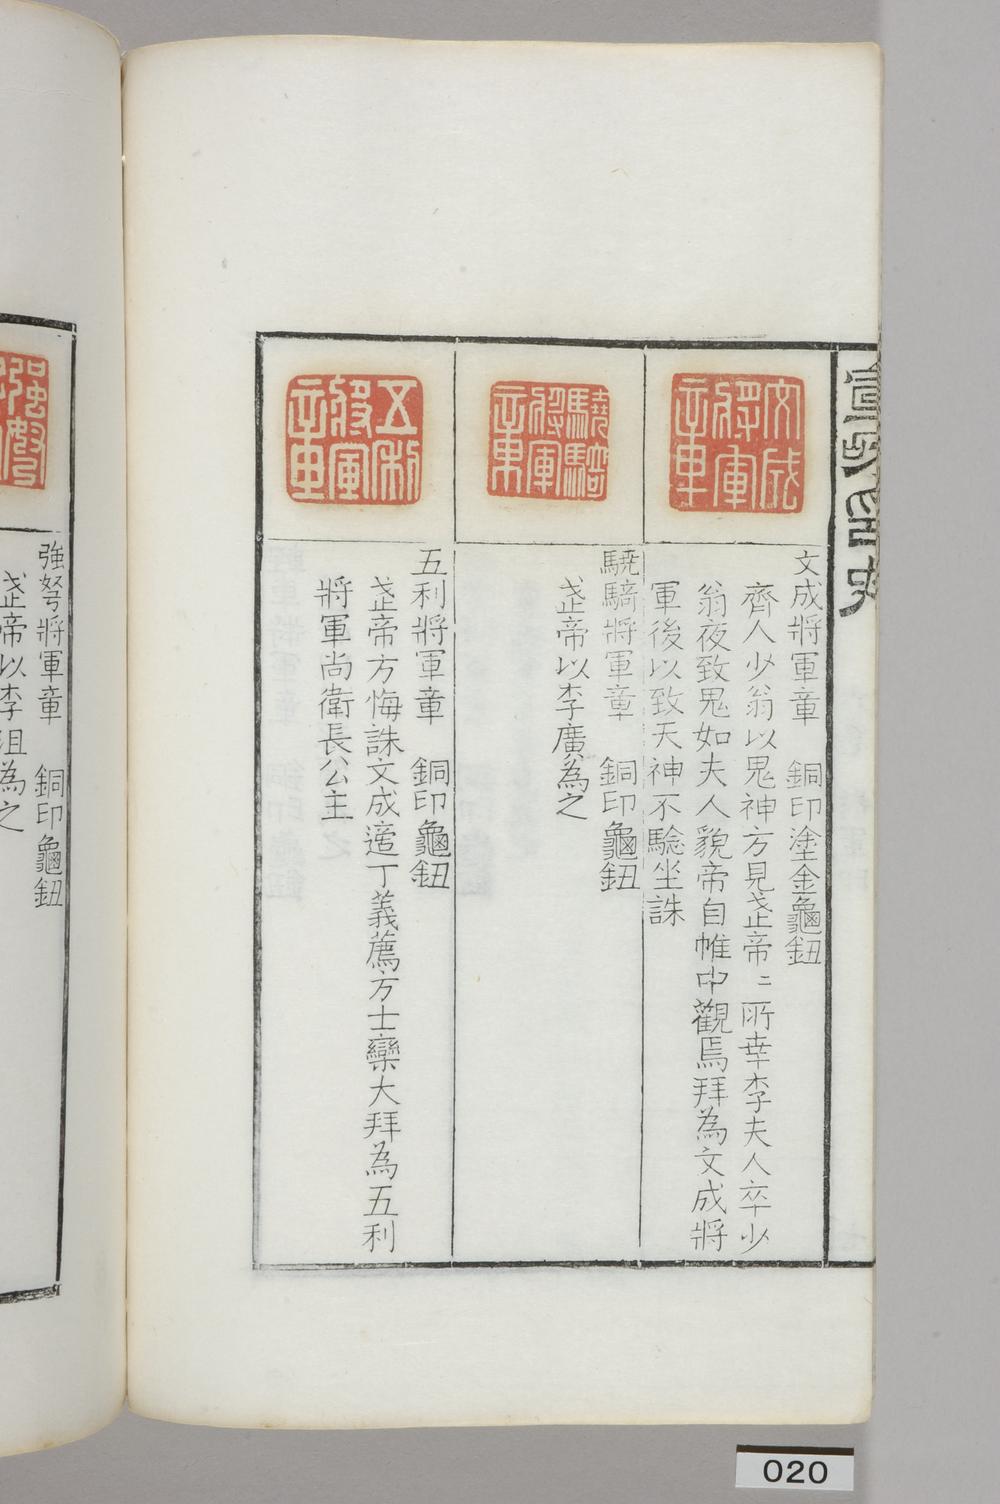 宣和印史
文成將軍章
文成將軍章　銅印塗金龜鈕
齊人少翁以鬼神方見武帝〻所幸李夫人卒少
翁夜致鬼如夫人貌帝自帷中觀焉拜為文成將
軍後以致天神不驗坐誅
驍騎將軍章
驍騎將軍章　銅印龜鈕
武帝以李廣為之
五利將軍章
五利將軍章　銅印龜鈕
武帝方悔誅文成適丁義薦方士欒大拜為五利
將軍尚衛長公主
強弩
強弩將軍章　銅印龜鈕
武帝以李沮為之
020